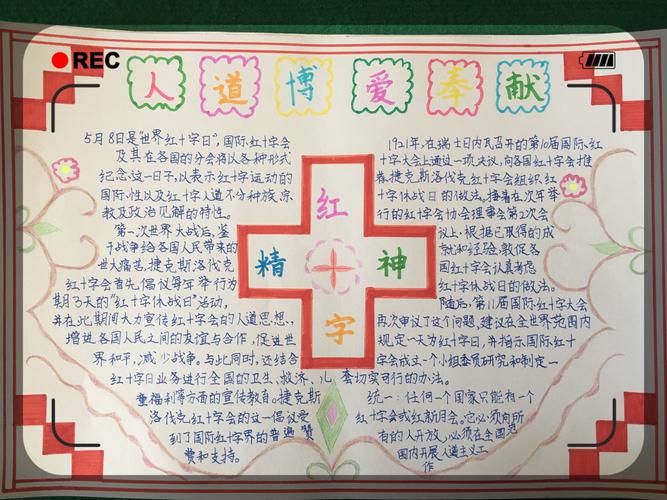 REC
人道博爱奉献
5月8日是"世界红十字日",国际红十字会
及其在各国的分会将以各种形式
纪念这一日子,以表示红十字运动的
国际性以及红十字人道不分种族、宗
教及政治见解的特性。
第一次世界大战后,鉴
于战争给各国人民带来的
世大痛苦,捷克斯洛伐克
红十字会首先倡议每年举行为
期3天的"红十字休战日"活动,
并在此期间大力宣传红十字会的人道思想、
增进各国人民之间的友谊与合作,促进世
界和平,减少战争。与此同时,还结合
红十字日业务进行全国的卫生、救济、儿
童福利等方面的宣传教育。捷克斯
洛伐克红十字会的这一倡议受
到了国际红十字界的普遍赞
赞和支持。
红
精
神
字
1921年,在瑞士日内瓦召开的第10届国际红
十字大会上通过一项决议,向各国红十字会推
荐捷克斯洛伐克红十字会组织红
十字休战日的做法。接着在次年举
行的红十字会协会理事会第2次会
议上,根据已取得的成
就和经验,敦促各
国红十字会认真考虑
红十字休战日的做法。
随后,第11届国际红十字大会
再次审议了这个问题,建议在全世界范围内
规定一天为红十字日,并指示国际红十
字会成立一个小组委员研究和制定一
套切实可行的办法。
统一:任何一个国家只能有一个
红十字会或红新月会。它必须向所
有的人开放,必须在全国范
围内开展人道主义工
作